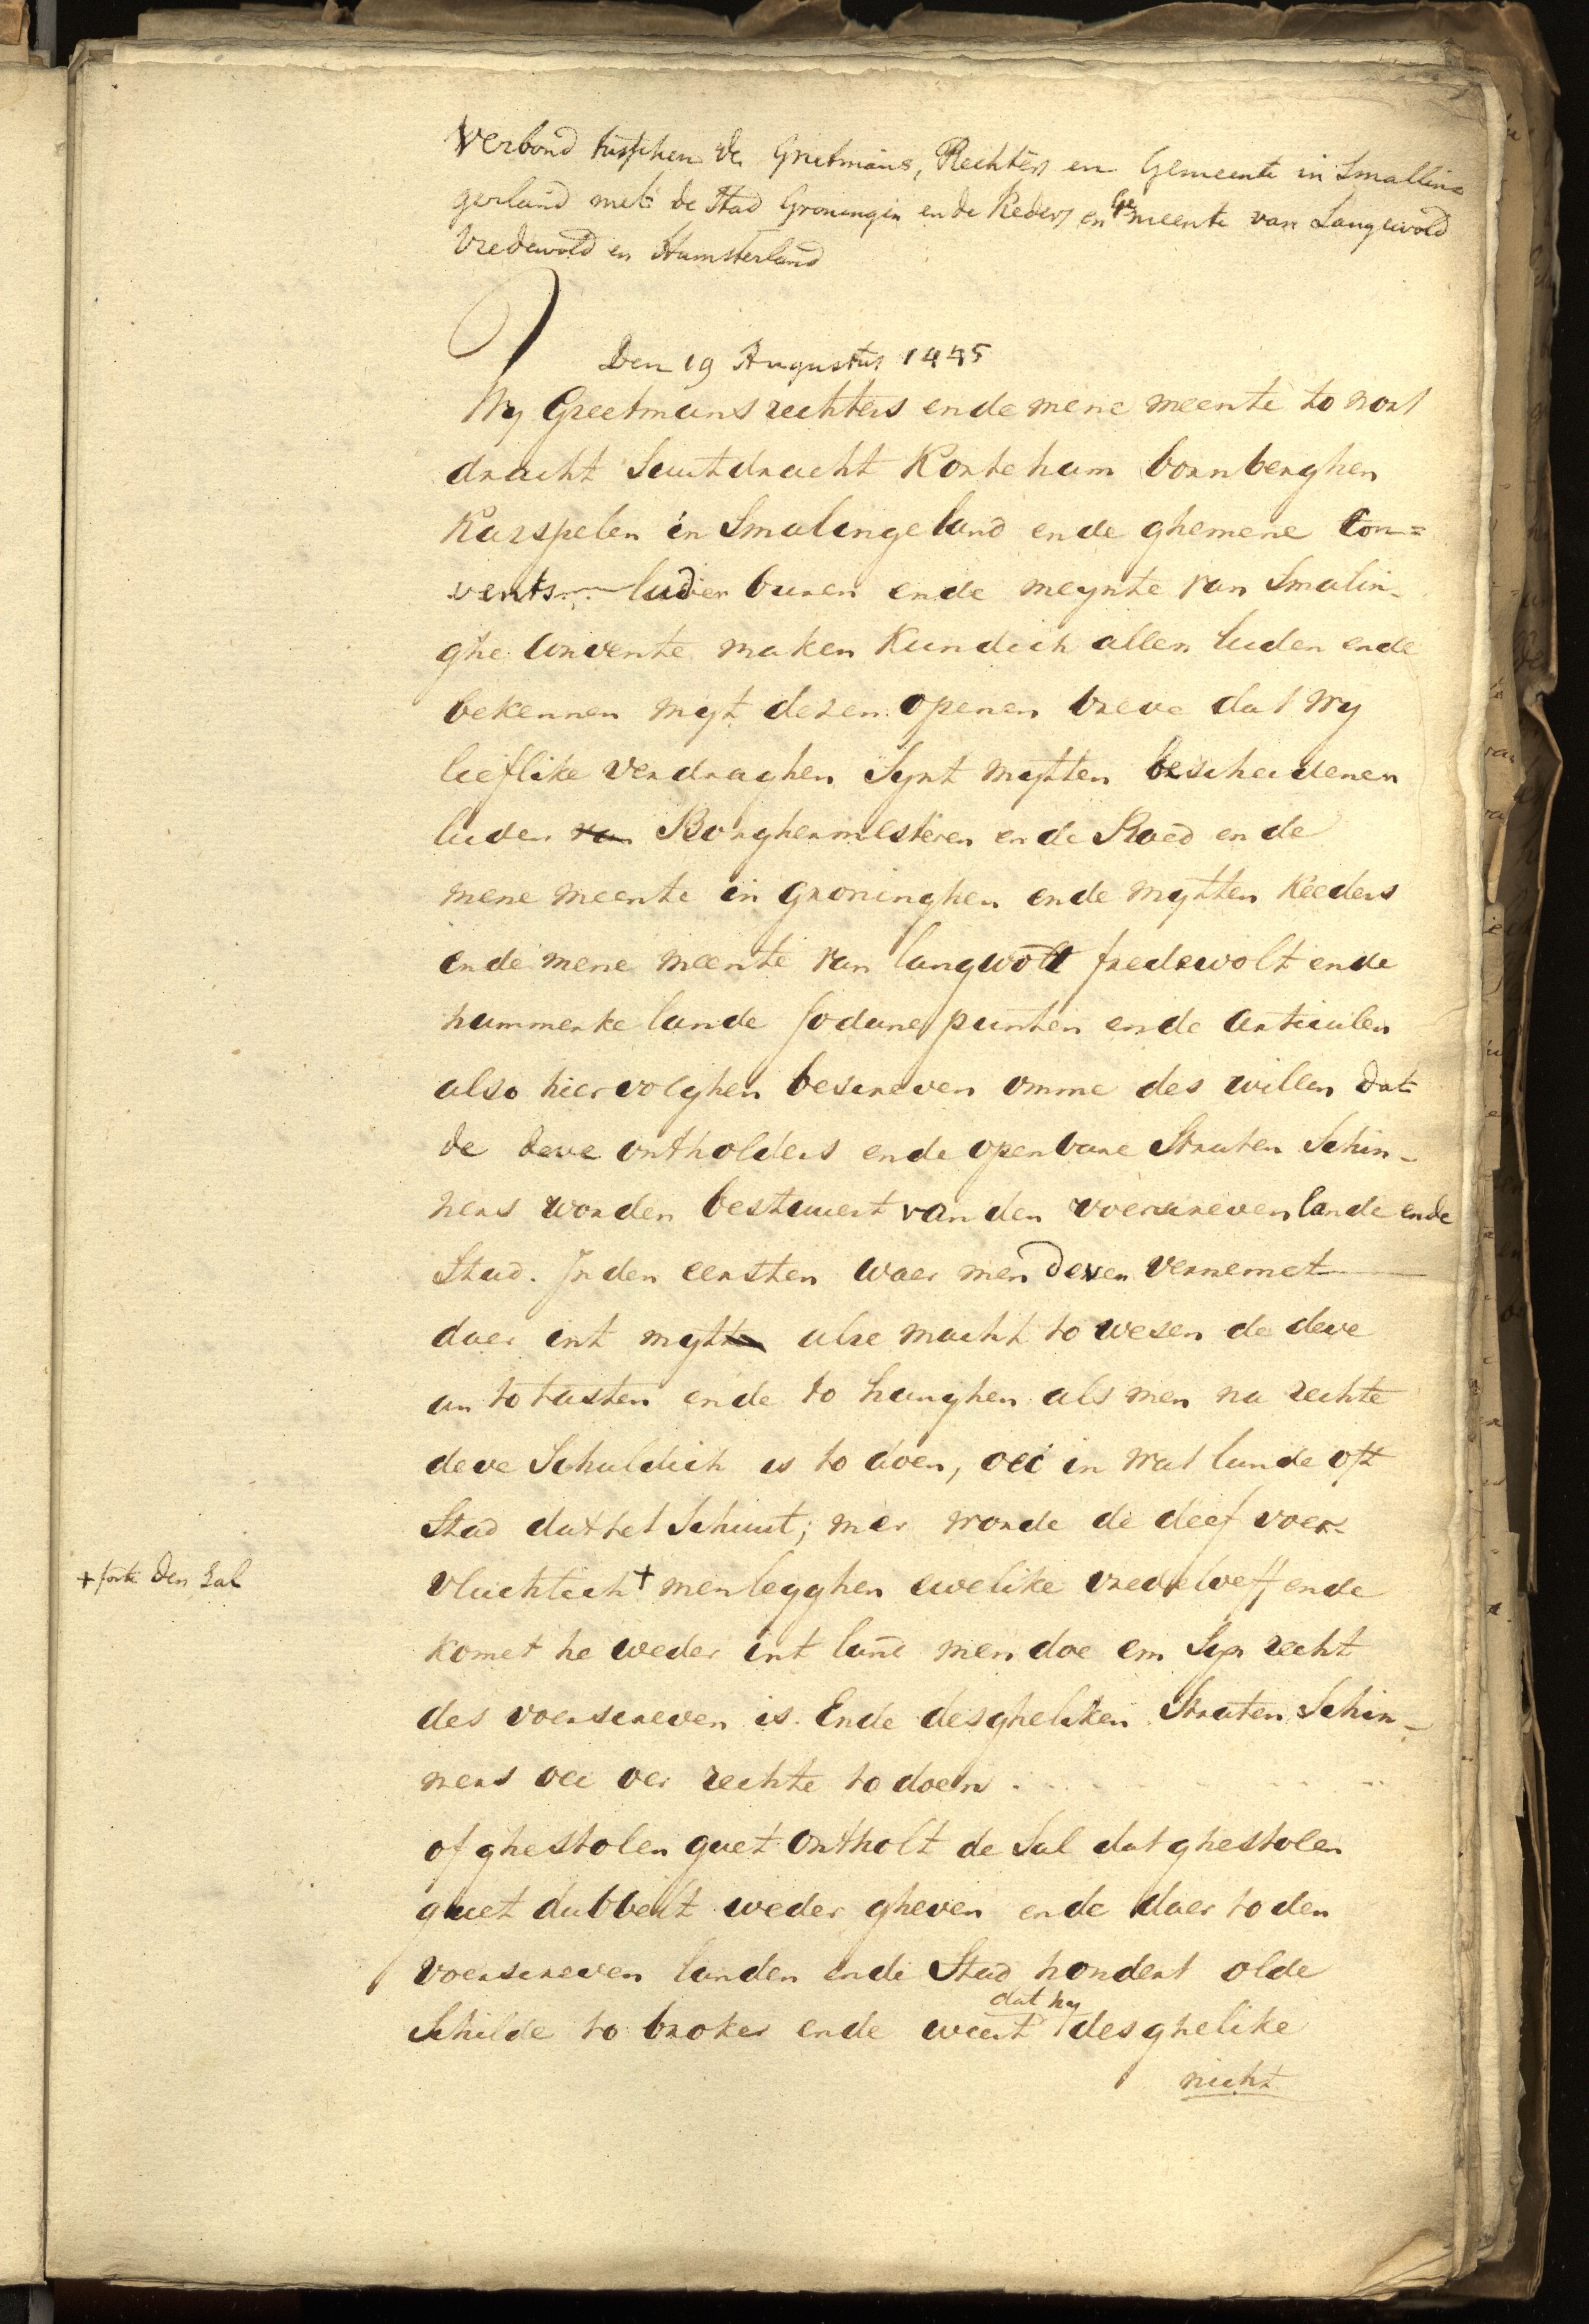 Verbond tusschen de Grietmans, Rechters en Gemeente in Smallin=
gerland met de Stad Groningen ende Reders en Gemeente van Langewold
Vredewold en Humsterland
Den 19 Augustus 1445
Wy Greetmans rechters ende mene meente to nort
dracht Suutdracht Korteham bornberghen
Karspelen in Smalingeland ende ghemene Con=
vents luden buren ende meynte van Smalin-
ghe Convente maken Kundich allen luden ende
bekennen myt desen openen breve dat wy
lieflike verdraghen Synt mytten bescheidenen
luden van Borghermesteren ende Raed ende
mene meente in groninghen ende mytten Reeders
ende mene meente van langwolt fredewolt ende
hummerke lande sodane punten ende articulen
also hier volghen bescreven omme des willen dat
de deve ontholders ende openbare Straten Schin-
ners worden bestuuert van den voerscreven lande ende
Stad. In den eersten waer men deven vernemet
daer int myt alre macht to wesen de deve
an to tasten ende to hanghen als men na rechte
deve Schuldich is to doen, oec in wat lande oft
Stad dat het Schuut; mer worde de deef voer
vluchtich + men legghen ewelike vredeloeff ende
komet he weder int land men doe em Syn recht
des voerscreven is. Ende desgheliken Straten Schin-
ners oec oer rechte to doen . . . . . .
of ghestolen guet ontholt de Sal dat ghestolen
guet dubbelt weder gheven ende daer to den
voerscreven landen ende Stad hondert olde
Schilde to broken ende weert dat hy desghelike
nicht
+ forte den Sal